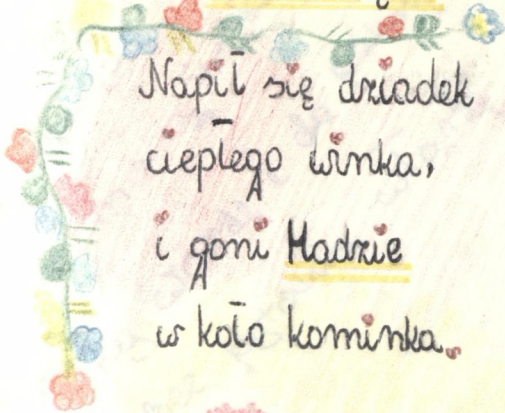 Napił się dziadek
ciepłego winka,
i goni Madzie
w koło kominka.